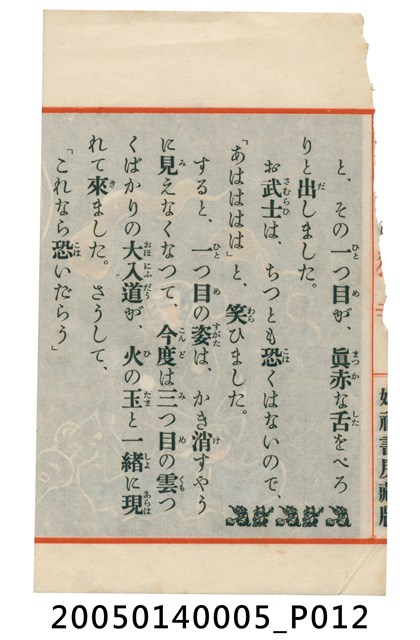 と、その一つ目が、眞赤な舌をべろ
りと出しました。
お武士は、ちつとも恐くはないので、
「あはははは」と、笑ひました。
すると、一つ目の姿は、かき消すやう
に見えなくなつて、今度は三つ目の雲つ
くばかりの大入道が、火の玉と一緒に現
れて來ました。さうして、
「これなら恐いだらう」
書房藏版
20050140005_P012